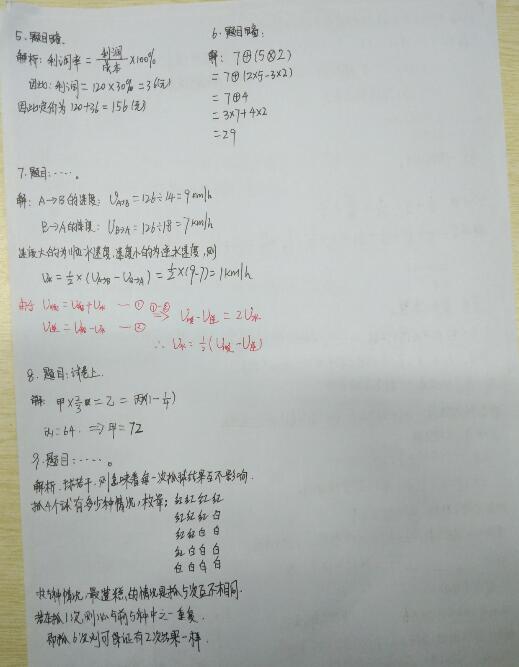 5. 题目略.
解析: 利润率 = 利润/成本 ×100%
因此: 利润 = 120×30% = 36(元)
因此定价为 120+36 = 156 (元)
6. 题目略:
解: 7⊕(5⊗2)
= 7⊕(2×5-3×2)
= 7⊕4
= 3×7+4×2
= 29
7. 题目: ……。
解: A→B的速度: V_{A→B} = 126÷14 = 9 km/h
B→A的速度: V_{B→A} = 126÷18 = 7 km/h
速度大的为顺水速度, 速度小的为逆水速度, 则
V水 = 1/2 × (V_{A→B} - V_{B→A}) = 1/2×(9-7) = 1 km/h
V顺 = V船+V水 — ①
①-② ⇒ V顺 - V逆 = 2V水
V逆 = V船-V水 — ②
∴ V水 = 1/2 (V顺 - V逆)
8. 题目: 试卷上.
解: 甲×2/3 = 乙 = 丙(1-1/4)
=64. ⇒ 甲 = 72
9. 题目: ……。
解析: 球若干, 则意味着每一次抓球结果互不影响.
抓4个球有多少种情况, 枚举: 红红红红
红红红白
红红白白
红白白白
白白白白
共5种情况, 最糟糕的情况是抓5次互不相同.
若在抓1次, 则必与前5种中之一重复.
即抓6次则可保证有2次结果一样.